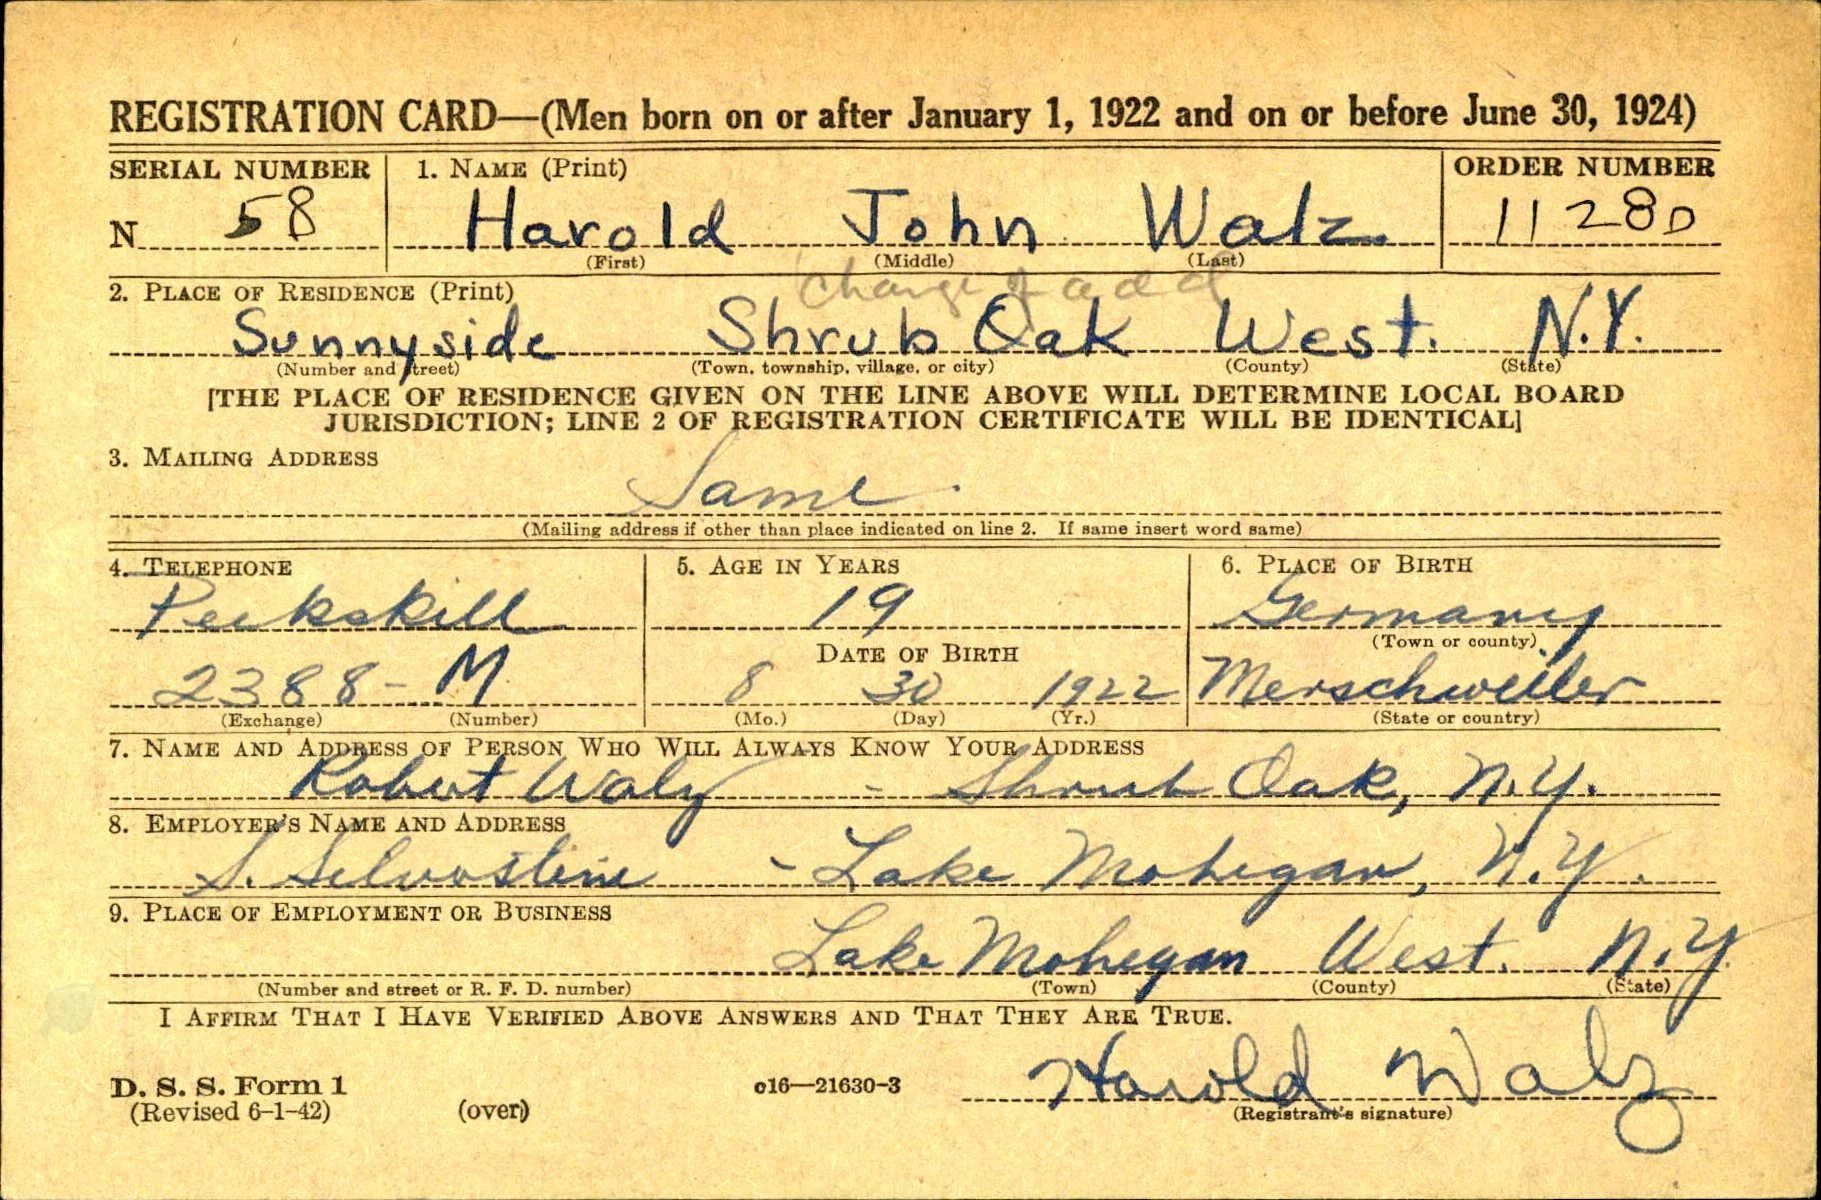 REGISTRATION CARD—(Men born on or after January 1, 1922 and on or before June 30, 1924)
SERIAL NUMBER 1. NAME (Print) ORDER NUMBER
N 58 Harold John Walz. 1128D
(First) (Middle) (Last)
change of add
2. PLACE OF RESIDENCE (Print)
Sunnyside Shrub Oak West. N.Y.
(Number and street) (Town, township, village, or city) (County) (State)
[THE PLACE OF RESIDENCE GIVEN ON THE LINE ABOVE WILL DETERMINE LOCAL BOARD
JURISDICTION; LINE 2 OF REGISTRATION CERTIFICATE WILL BE IDENTICAL]
3. MAILING ADDRESS
Same
(Mailing address if other than place indicated on line 2. If same insert word same)
4. TELEPHONE 5. AGE IN YEARS 6. PLACE OF BIRTH
Peekskill 19 Germany
(Town or county)
DATE OF BIRTH
2388-M 8 30 1922 Merschweiler
(Exchange) (Number) (Mo.) (Day) (Yr.) (State or country)
7. NAME AND ADDRESS OF PERSON WHO WILL ALWAYS KNOW YOUR ADDRESS
Robert Walz - Shrub Oak, N.Y.
8. EMPLOYER'S NAME AND ADDRESS
S. - Lake Mohegan, N.Y.
9. PLACE OF EMPLOYMENT OR BUSINESS
Lake Mohegan West. N.Y.
(Number and street or R. F. D. number) (Town) (County) (State)
I AFFIRM THAT I HAVE VERIFIED ABOVE ANSWERS AND THAT THEY ARE TRUE.
D. S. S. Form 1 c16—21630-3 Harold Walz
(Revised 6-1-42) (over) (Registrant's signature)